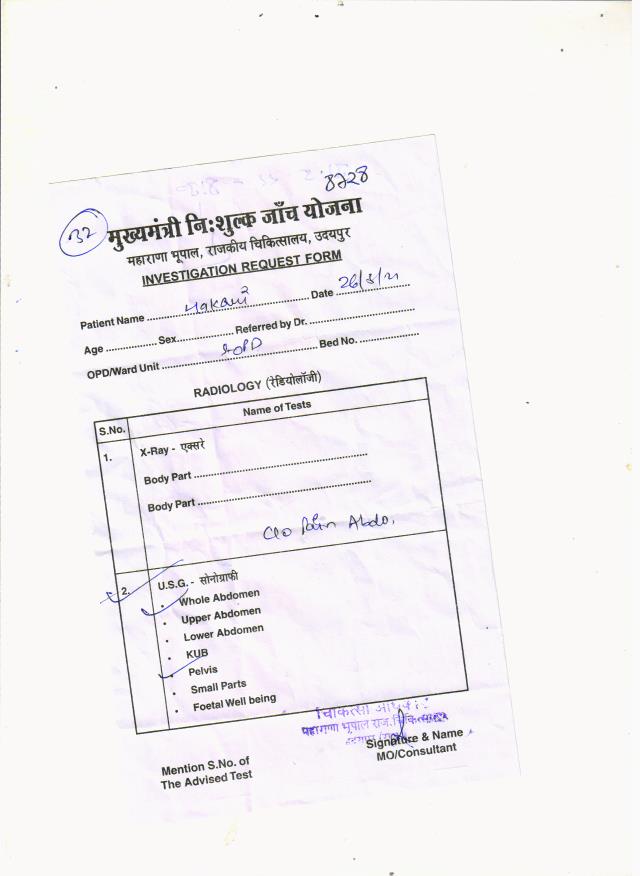 8728
32
मुख्यमंत्री निःशुल्क जाँच योजना
महाराणा भूपाल, राजकीय चिकित्सालय, उदयपुर
INVESTIGATION REQUEST FORM
Patient Name ........ Date 26/3/21
Age ........ Sex ........ Referred by Dr. ........
OPD/Ward Unit ........ Bed No. ........
RADIOLOGY (रेडियोलॉजी)
S.No. Name of Tests
1. X-Ray - एक्सरे
Body Part ........
Body Part ........
C/o Pain Abdo.
2. U.S.G. - सोनोग्राफी
• Whole Abdomen
• Upper Abdomen
• Lower Abdomen
• KUB
• Pelvis
• Small Parts
• Foetal Well being
चिकित्सा अधिकारी
महाराणा भूपाल राज. चिकित्सालय
Signature & Name
MO/Consultant
Mention S.No. of
The Advised Test